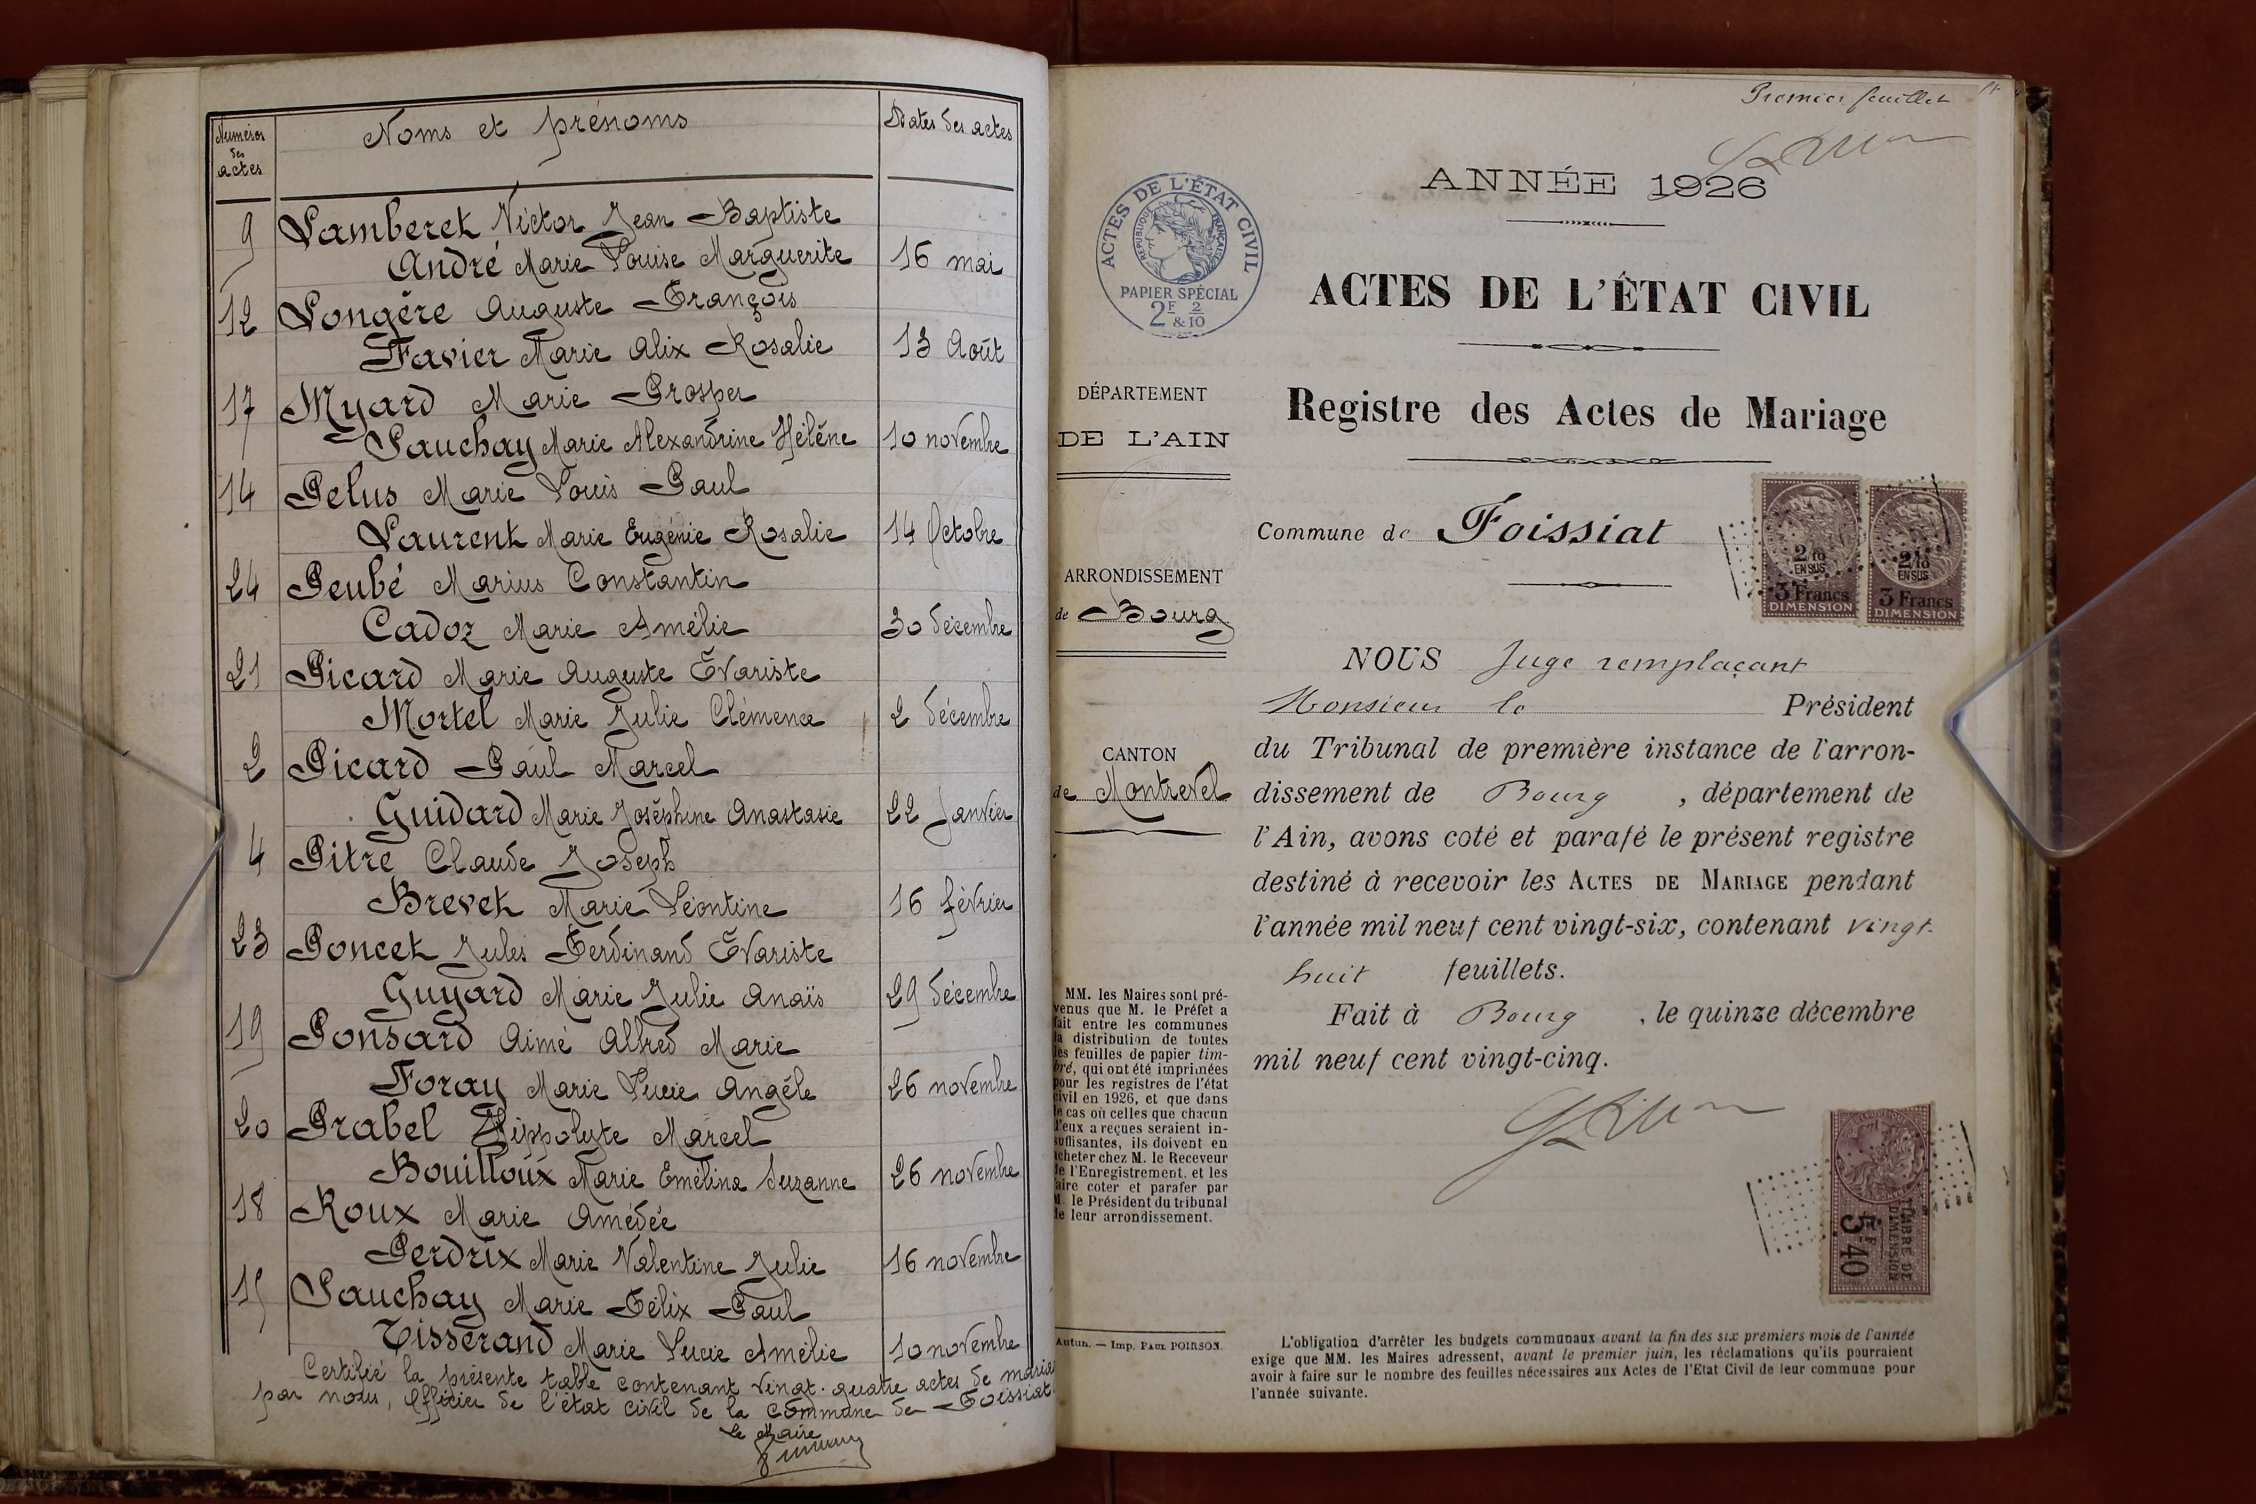 Numéros des actes
Noms et prénoms
Dates des actes
9 Lamberet Victor Jean Baptiste
André Marie Louise Marguerite 16 mai
12 Longère Auguste François
Favier Marie Alix Rosalie 13 Août
17 Myard Marie Prosper
Sauchay Marie Alexandrine Hélène 10 novembre
14 Pelus Marie Louis Paul
Laurent Marie Eugénie Rosalie 14 Octobre
24 Peubé Marius Constantin
Cadoz Marie Amélie 30 décembre
21 Picard Marie Auguste Evariste
Mortel Marie Julie Clémence 2 décembre
2 Picard Paul Marcel
Guidard Marie Joséphine Anastasie 22 Janvier
4 Pitre Claude Joseph
Brevet Marie Léontine 16 février
23 Poncet Jules Ferdinand Evariste
Guyard Marie Julie Anaïs 29 décembre
19 Ponsard Aimé Alfred Marie
Foray Marie Lucie Angèle 26 novembre
20 Prabel Hippolyte Marcel
Bouilloux Marie Emélina Suzanne 26 novembre
18 Roux Marie Amédée
Perdrix Marie Valentine Julie 16 novembre
15 Sauchay Marie Félix Paul
Tisserand Marie Lucie Amélie 10 novembre
Certifié la présente table contenant vingt-quatre actes de
par nous, Officier de l'état civil de la commune de Foissiat
Le Maire
Premier feuillet
ANNÉE 1926
ACTES DE L'ÉTAT CIVIL
RÉPUBLIQUE FRANÇAISE
PAPIER SPÉCIAL
2F & 2/10
ACTES DE L'ÉTAT CIVIL
Registre des Actes de Mariage
DÉPARTEMENT
DE L'AIN
Commune de Foissiat
2/10
EN SUS
3 Francs
DIMENSION
2/10
EN SUS
3 Francs
DIMENSION
ARRONDISSEMENT
de Bourg
CANTON
de Montrevel
NOUS Juge remplaçant
Monsieur le Président
du Tribunal de première instance de l'arron-
dissement de Bourg , département de
l'Ain, avons coté et parafé le présent registre
destiné à recevoir les ACTES DE MARIAGE pendant
l'année mil neuf cent vingt-six, contenant vingt-
huit feuillets.
Fait à Bourg , le quinze décembre
mil neuf cent vingt-cinq.
MM. les Maires sont pré-
venus que M. le Préfet a
fait entre les communes
la distribution de toutes
les feuilles de papier tim-
bré, qui ont été imprimées
pour les registres de l'état
civil en 1926, et que dans
le cas où celles que chacun
d'eux a reçues seraient in-
suffisantes, ils doivent en
acheter chez M. le Receveur
de l'Enregistrement, et les
faire coter et parafer par
M. le Président du tribunal
de leur arrondissement.
TIMBRE DE
DIMENSION
5F40
Autun. — Imp. PAUL POIRSON.
L'obligation d'arrêter les budgets communaux avant la fin des six premiers mois de l'année
exige que MM. les Maires adressent, avant le premier juin, les réclamations qu'ils pourraient
avoir à faire sur le nombre des feuilles nécessaires aux Actes de l'Etat Civil de leur commune pour
l'année suivante.